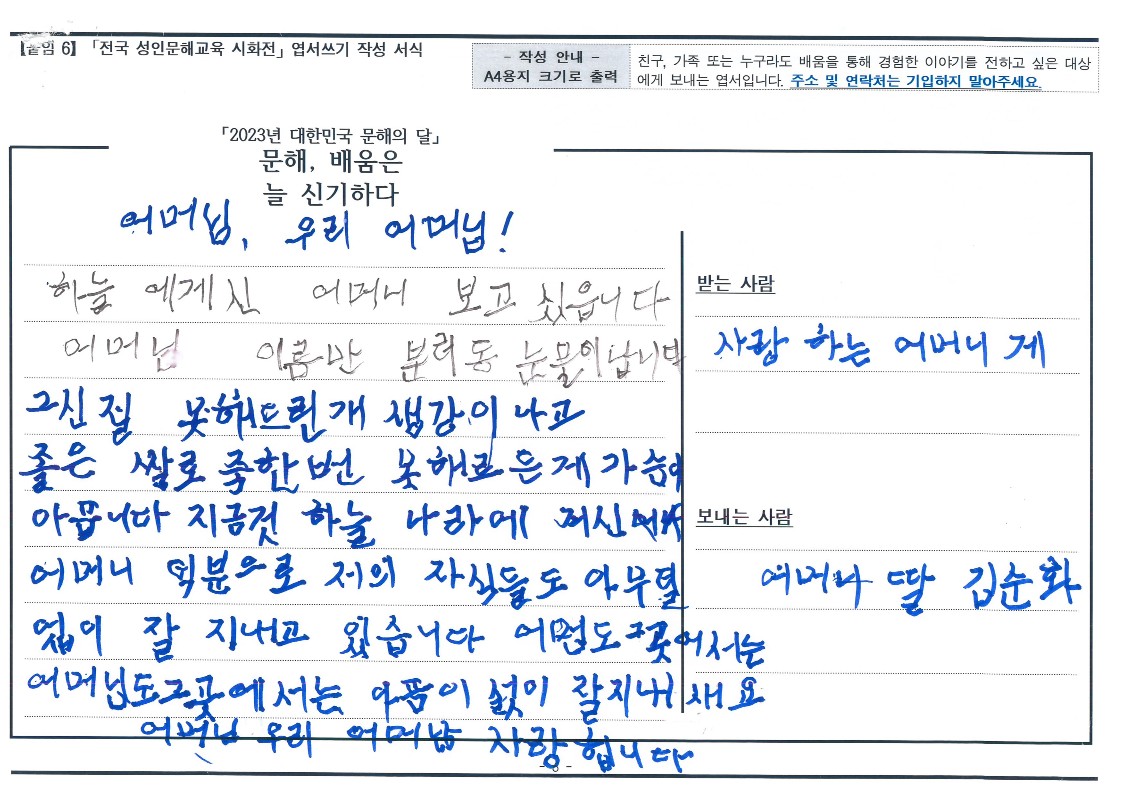 【붙임 6】「전국 성인문해교육 시화전」 엽서쓰기 작성 서식
- 작성 안내 -
A4용지 크기로 출력
친구, 가족 또는 누구라도 배움을 통해 경험한 이야기를 전하고 싶은 대상
에게 보내는 엽서입니다. 주소 및 연락처는 기입하지 말아주세요.
「2023년 대한민국 문해의 달」
문해, 배움은
늘 신기하다
어머님, 우리 어머님!
하늘 에게신 어머니 보고 싶읍니다
어머님 이름만 불러동 눈물이납니다
그신 질 못해드린개 생강이 나고
좋은 쌀로 죽한번 못해로든게 가슴이
아픔니다 지금것 하늘 나라에 게신
어머니 덕분으로 저의 자식들도 아무탈
업이 잘 지내고 있습니다 그곳에서는
어머님도그곳에서는 아픔이 없이 잘지내새요
어머님 우리 어머님 사랑 합니다
받는 사람
사랑 하는 어머니 게
보내는 사람
어머니 딸 김순화
- 6 -